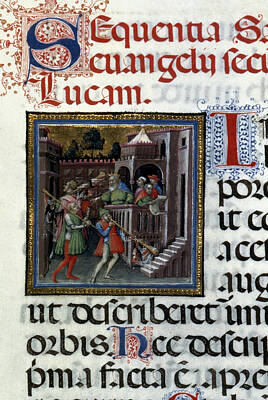 SEQUENTIA Sa
euangelij secu
Lucam.
I
poze
ut ce
acce
aug
ut describeret uni
orbis. Hec descrip
pma facta ē a pre